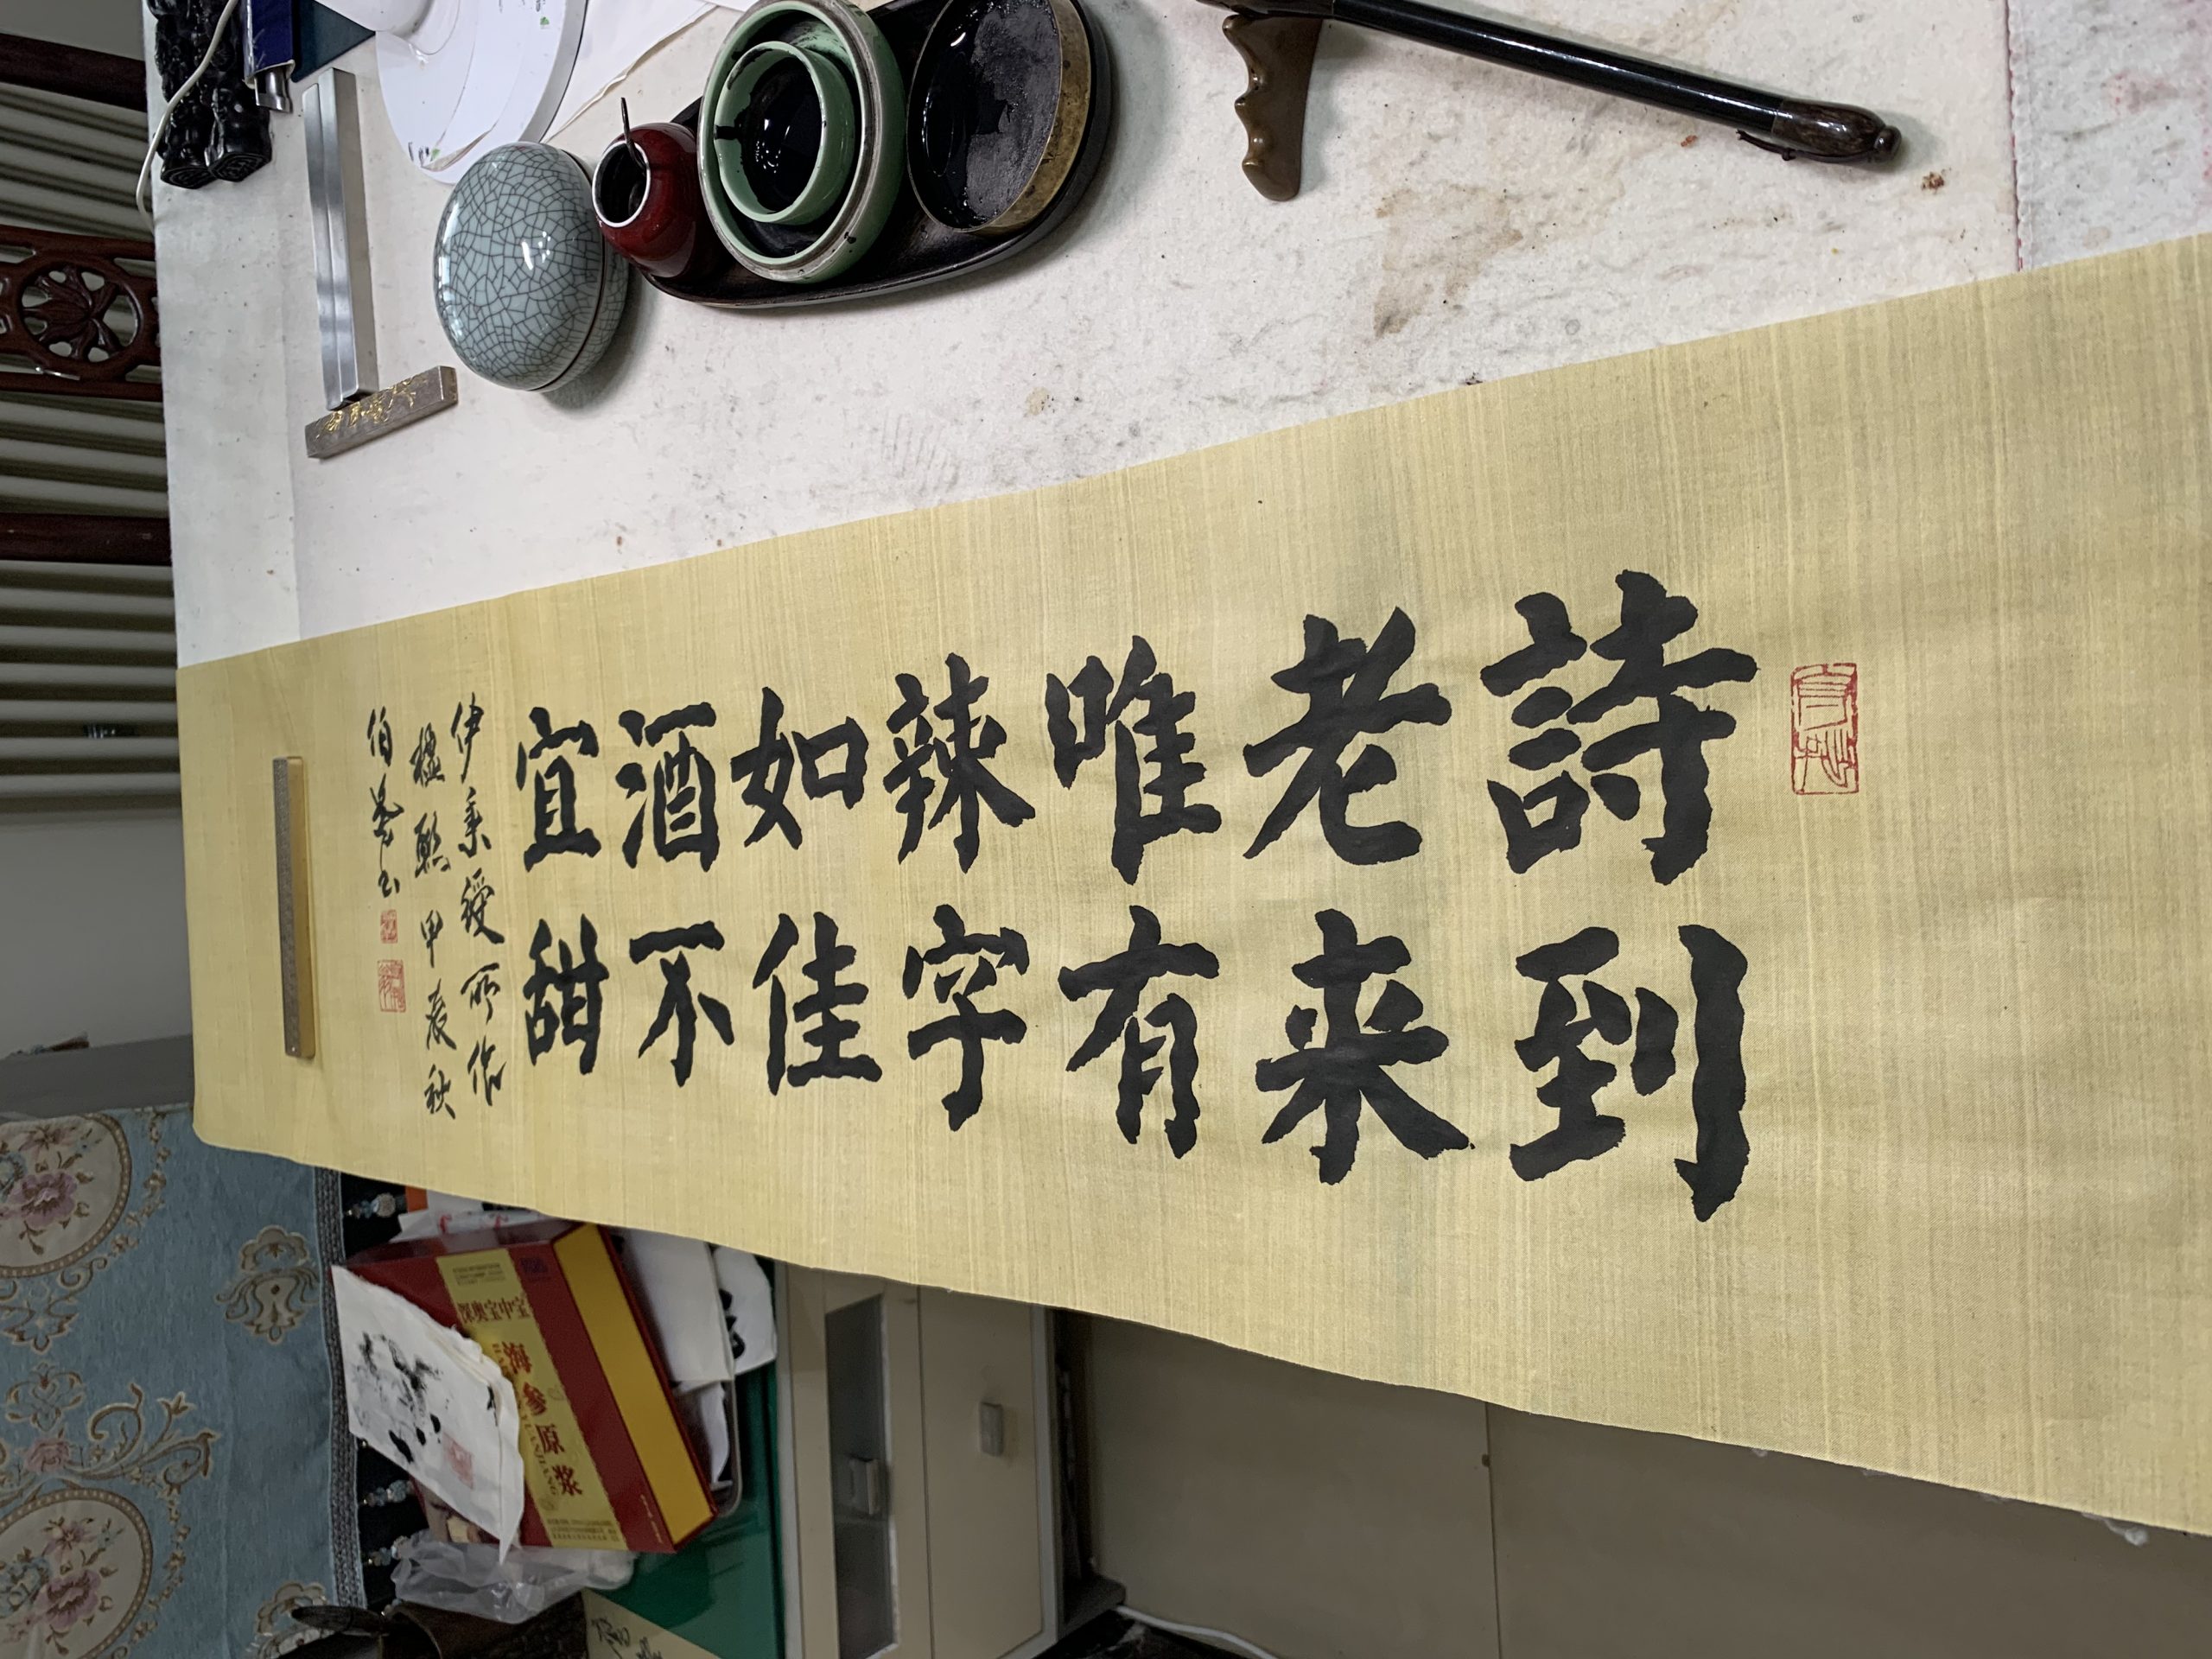 詩到
老来
唯有
辣字
如佳
酒不
宜甜
伊秉綬所作
楹聯甲辰秋
伯
书
宝中宝
海参原浆